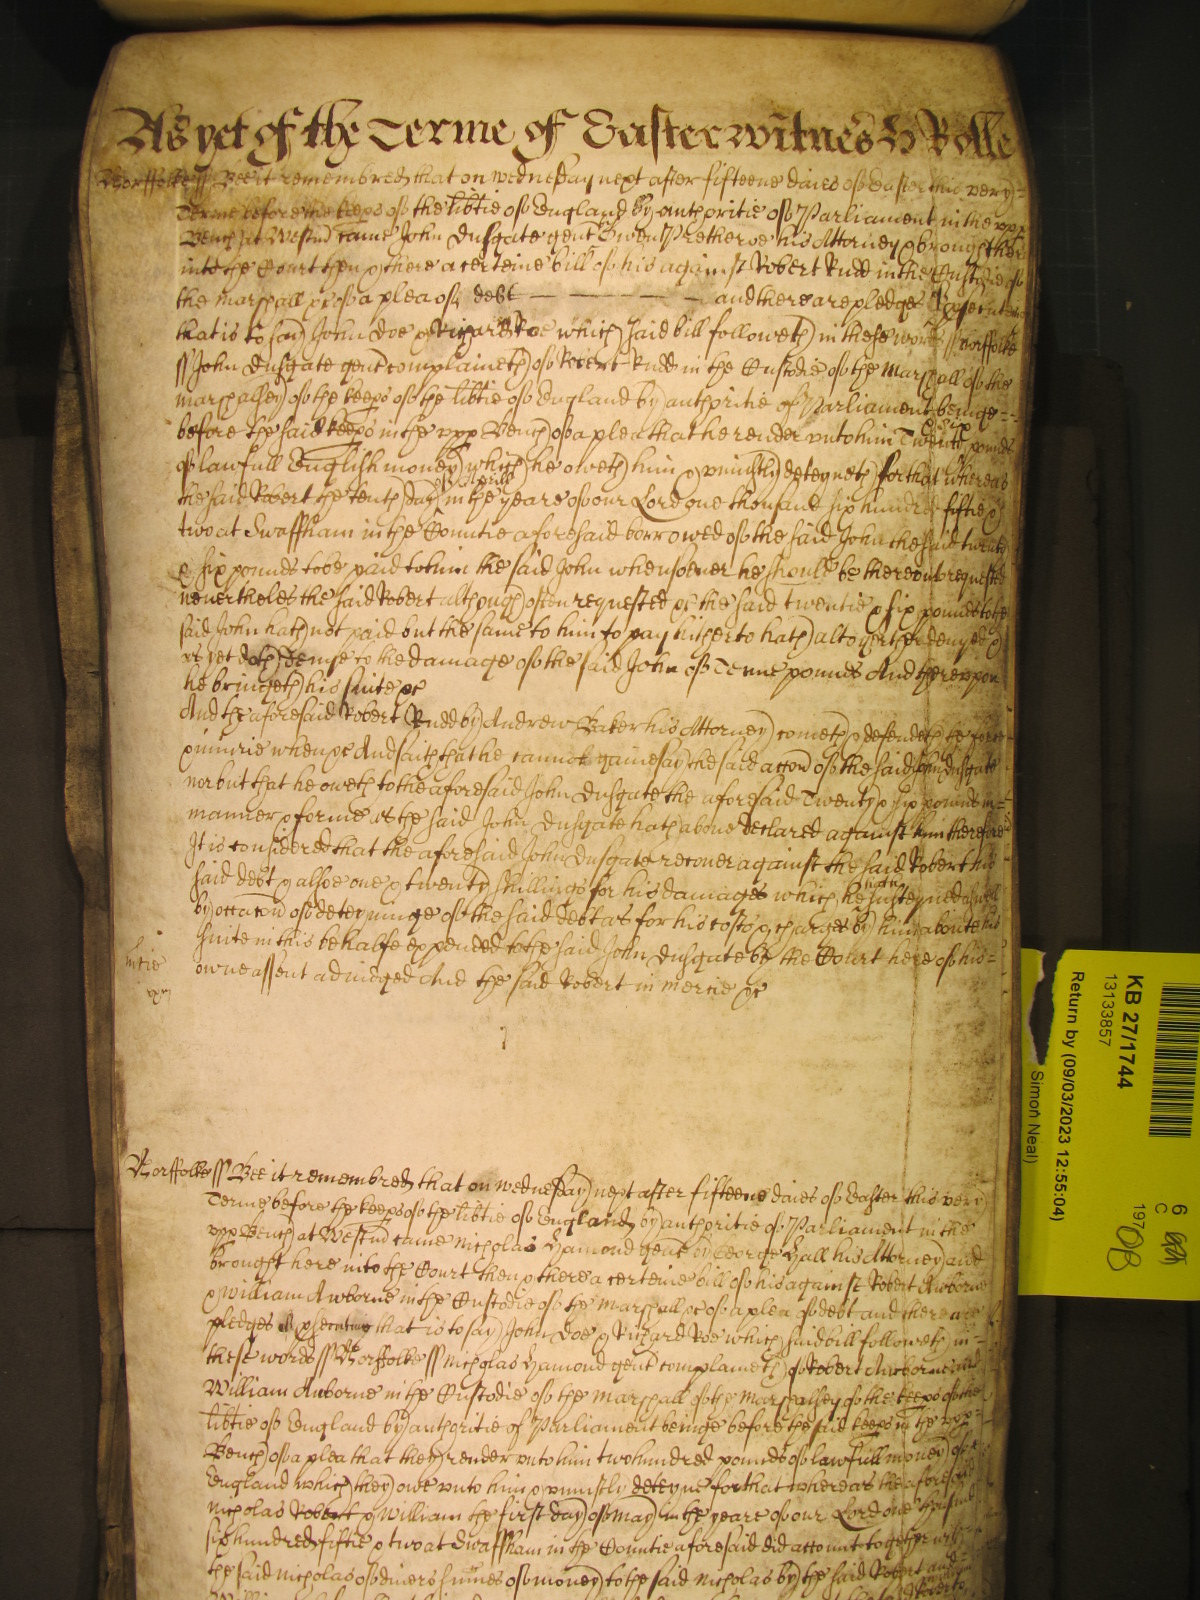 As yet of the Terme of Easter witnes H Rolle
Norffolke ss Bee it remembred that on wednesday next after fifteene daies of Easter this very
Terme before the keeps of the libtie of England by authoritie of Parliament in the vpp
Bench at Westm came John Dusgate gent by Owen Pretheroe his Attorney & brought here
into the Court then & there a certeine bill of his against Robert Rudd in the Custodie of
the marshall &c of a plea of debt — — — — — and there are pledges
that is to say John Doe & Richard Roe which said bill followeth in these words ss Norffolke
ss John Dusgate gent complaineth of Robert Rudd in the Custodie of the Marshall of the
marshalsey of the keeps of the libtie of England by authoritie of Parliament beinge
before the said keeps in the vpp Bench of a plea that he render vnto him Twenty & six pounds
of lawfull English money which he oweth him & vniustly deteyneth for that whereas
the said Robert the tenth day of Aprill in the yeare of our Lord one thousand six hundred fiftie &
two at Swaffham in the Countie aforesaid borrowed of the said John the said twenty
& six pounds to be paid to him the said John whensoever he should be thereunto requested
neuertheles the said Robert although often requested &c the said twentie & six pounds to the
said John hath not paid but the same to him to pay hitherto hath altogether denyed &
as yet doth denye to the damage of the said John of Tenne pounds And therevpon
he bringeth his suite &c
And the aforesaid Robert Rudd by Andrew Baker his Attorney cometh & defendeth the force
& iniurie when &c And saith that he cannot gainesay the said accon of the said John Dusgate
nor but that he oweth to the aforesaid John Dusgate the aforesaid Twenty & six pounds in
manner & forme as the said John Dusgate hath aboue declared against him therefore
It is considered that the aforesaid John Dusgate recouer against the said Robert his
said debt & alsoe one & twenty shillings for his damages which he hath susteyned aswell
by occacon of deteyninge of the said debt as for his costs & charges by him aboute his
suite in this behalfe expended to the said John Dusgate by the Court here of his
owne assent adiudged And the said Robert in mercie &c
mcie
Norffolke ss Bee it remembred that on wednesday next after fifteene daies of Easter this very
Terme before the keeps of the libtie of England by authoritie of Parliament in the
vpp Bench at Westm came Nicholas Hamond gent by George Hall his Attorney and
brought here into the Court then & there a certeine bill of his against Robert Awborne
& William Awborne in the Custodie of the marshall &c of a plea of debt and there are
pledges that is to say John Doe & Richard Roe which said bill followeth in
these words ss Norffolke ss Nicholas Hamond gent complaineth of Robert Awborne and
William Awborne in the Custodie of the marshall of the marshalsey of the keeps of the
libtie of England by authoritie of Parliament beinge before the said keeps in the vpp
Bench of a plea that they render vnto him two hundred pounds of lawfull money of
England which they owe vnto him & vniustly deteyne for that whereas the aforesaid
Nicholas Robert & William the first day of May in the yeare of our Lord one thousand
six hundred fiftie & two at Swaffham in the Countie aforesaid did account together with
the said Nicholas of diuers summes of money to the said Nicholas by the said Robert and
KB 27/1744
13133857
Return by (09/03/2023 12:55:04)
Simon Neal)
6
C
197